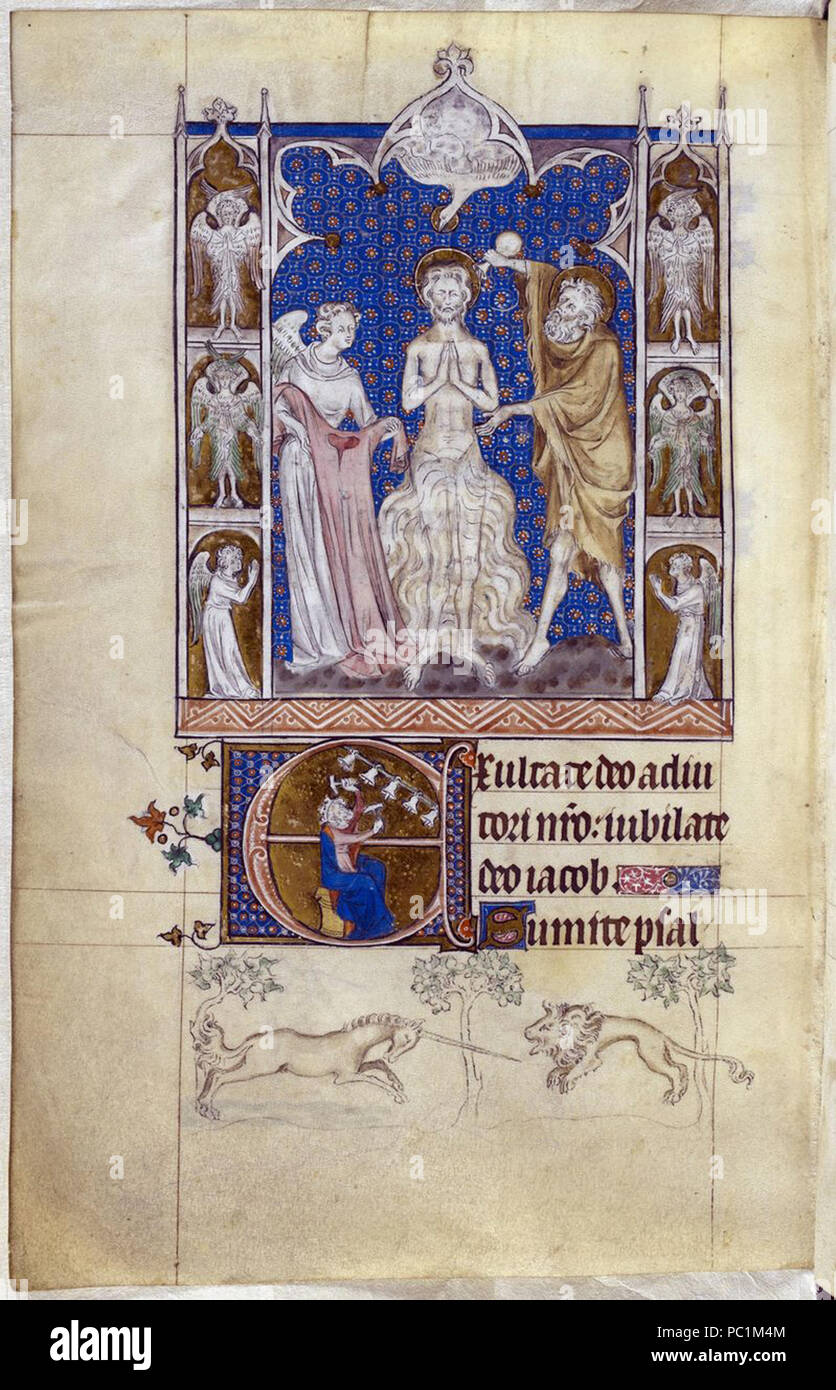 Exultate deo adiu
tori nr̄o: iubilate
deo iacob.
Sumite psal
alamy
Image ID: PC1M4M
www.alamy.com